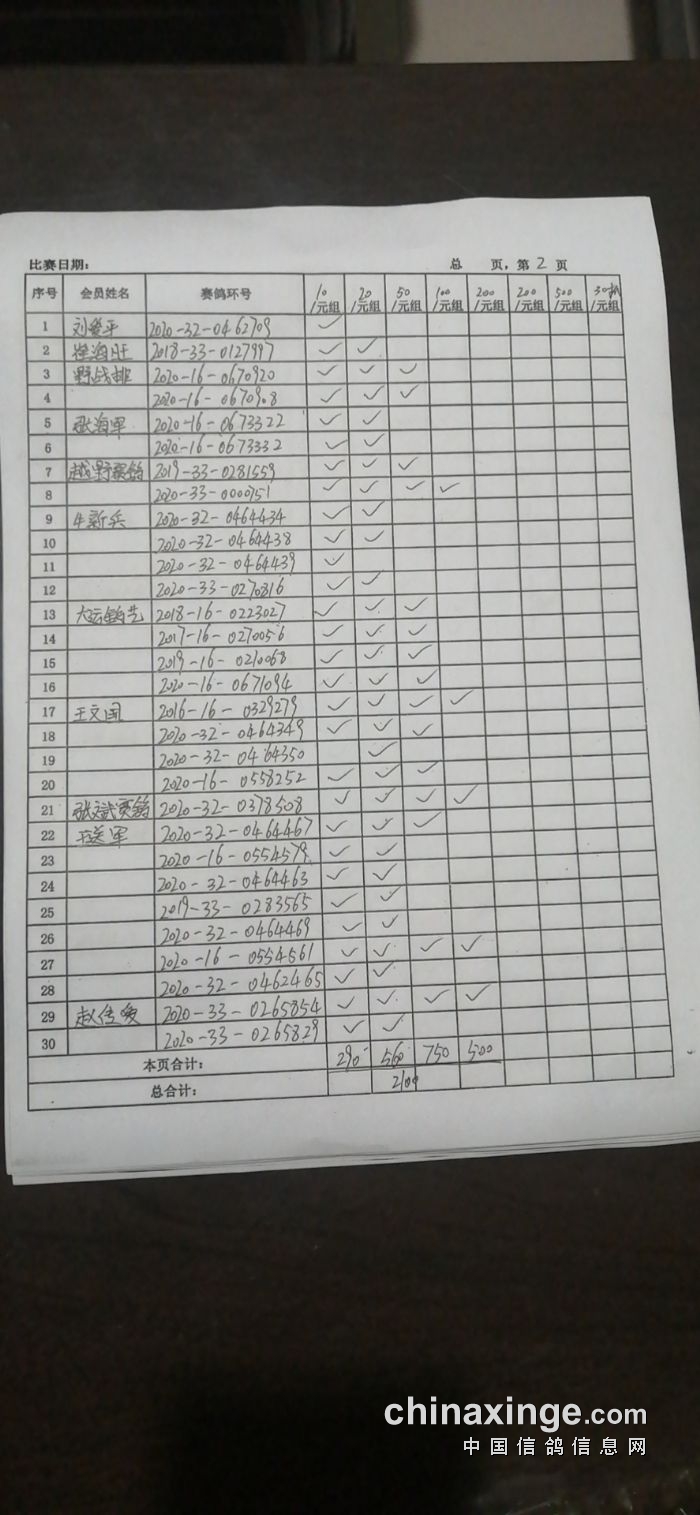 比赛日期: 总 页, 第 2 页
序号 会员姓名 赛鸽环号 10/元组 20/元组 50/元组 100/元组 200/元组 200/元组 500/元组 /元组
1 刘爱平 2020-32-0462709 ✓
2 崔海旺 2018-33-0127997 ✓ ✓
3 野战排 2020-16-0670920 ✓ ✓ ✓
4 2020-16-0670908 ✓ ✓ ✓
5 张海军 2020-16-0673322 ✓ ✓
6 2020-16-0673332 ✓ ✓
7 越野赛鸽 2019-33-0281559 ✓ ✓ ✓
8 2020-33-0000751 ✓ ✓ ✓ ✓
9 牛新兵 2020-32-0464434 ✓ ✓
10 2020-32-0464438 ✓ ✓
11 2020-32-0464439 ✓
12 2020-33-0270816 ✓ ✓
13 大运鸽艺 2018-16-0223027 ✓ ✓ ✓
14 2017-16-0270056 ✓ ✓ ✓
15 2019-16-0210068 ✓ ✓ ✓
16 2020-16-0671094 ✓ ✓ ✓
17 王文国 2016-16-0329279 ✓ ✓ ✓ ✓
18 2020-32-0464349 ✓ ✓ ✓
19 2020-32-0464350 ✓
20 2020-16-0558252 ✓ ✓ ✓
21 张斌赛鸽 2020-32-0378508 ✓ ✓ ✓ ✓
22 军 2020-32-0464467 ✓ ✓ ✓
23 2020-16-0554579 ✓ ✓
24 2020-32-0464463 ✓ ✓
25 2019-33-0283565 ✓ ✓
26 2020-32-0464469 ✓ ✓
27 2020-16-0554561 ✓ ✓ ✓ ✓
28 2020-32-0462465 ✓ ✓
29 赵 2020-33-0265854 ✓ ✓ ✓ ✓
30 2020-33-0265829 ✓ ✓
本页合计: 290 560 750 500
总合计: 2100
chinaxinge.com
中国信鸽信息网